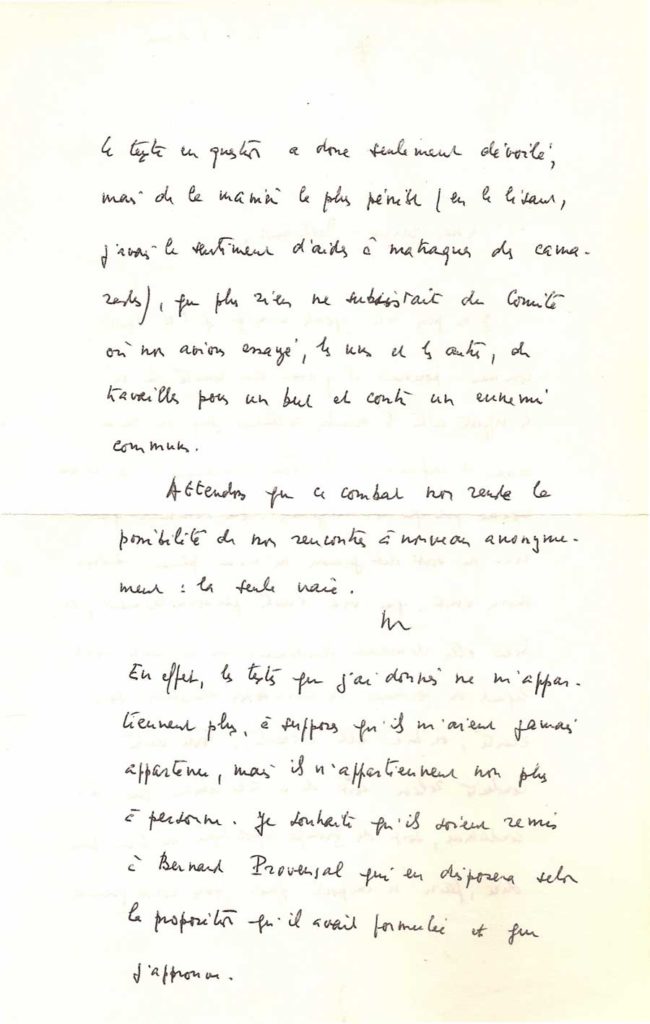 le texte en question a donc seulement dévoilé,
mais de la manière la plus pénible (en le lisant,
j'avais le sentiment d'aider à matraquer des cama-
rades), que plus rien ne subsistait du Comité
où nous avions essayé, les uns et les autres, de
travailler pour un but et contre un ennemi
communs.
Attendons que ce combat nous rende la
possibilité de nous rencontrer à nouveau anonyme-
ment : la seule vraie.
En effet, les textes que j'ai donnés ne m'appar-
tiennent plus, à supposer qu'ils m'aient jamais
appartenu, mais ils n'appartiennent non plus
à personne. Je souhaite qu'ils soient remis
à Bernard Provensal qui en disposera selon
la proposition qu'il avait formulée et que
j'approuve.